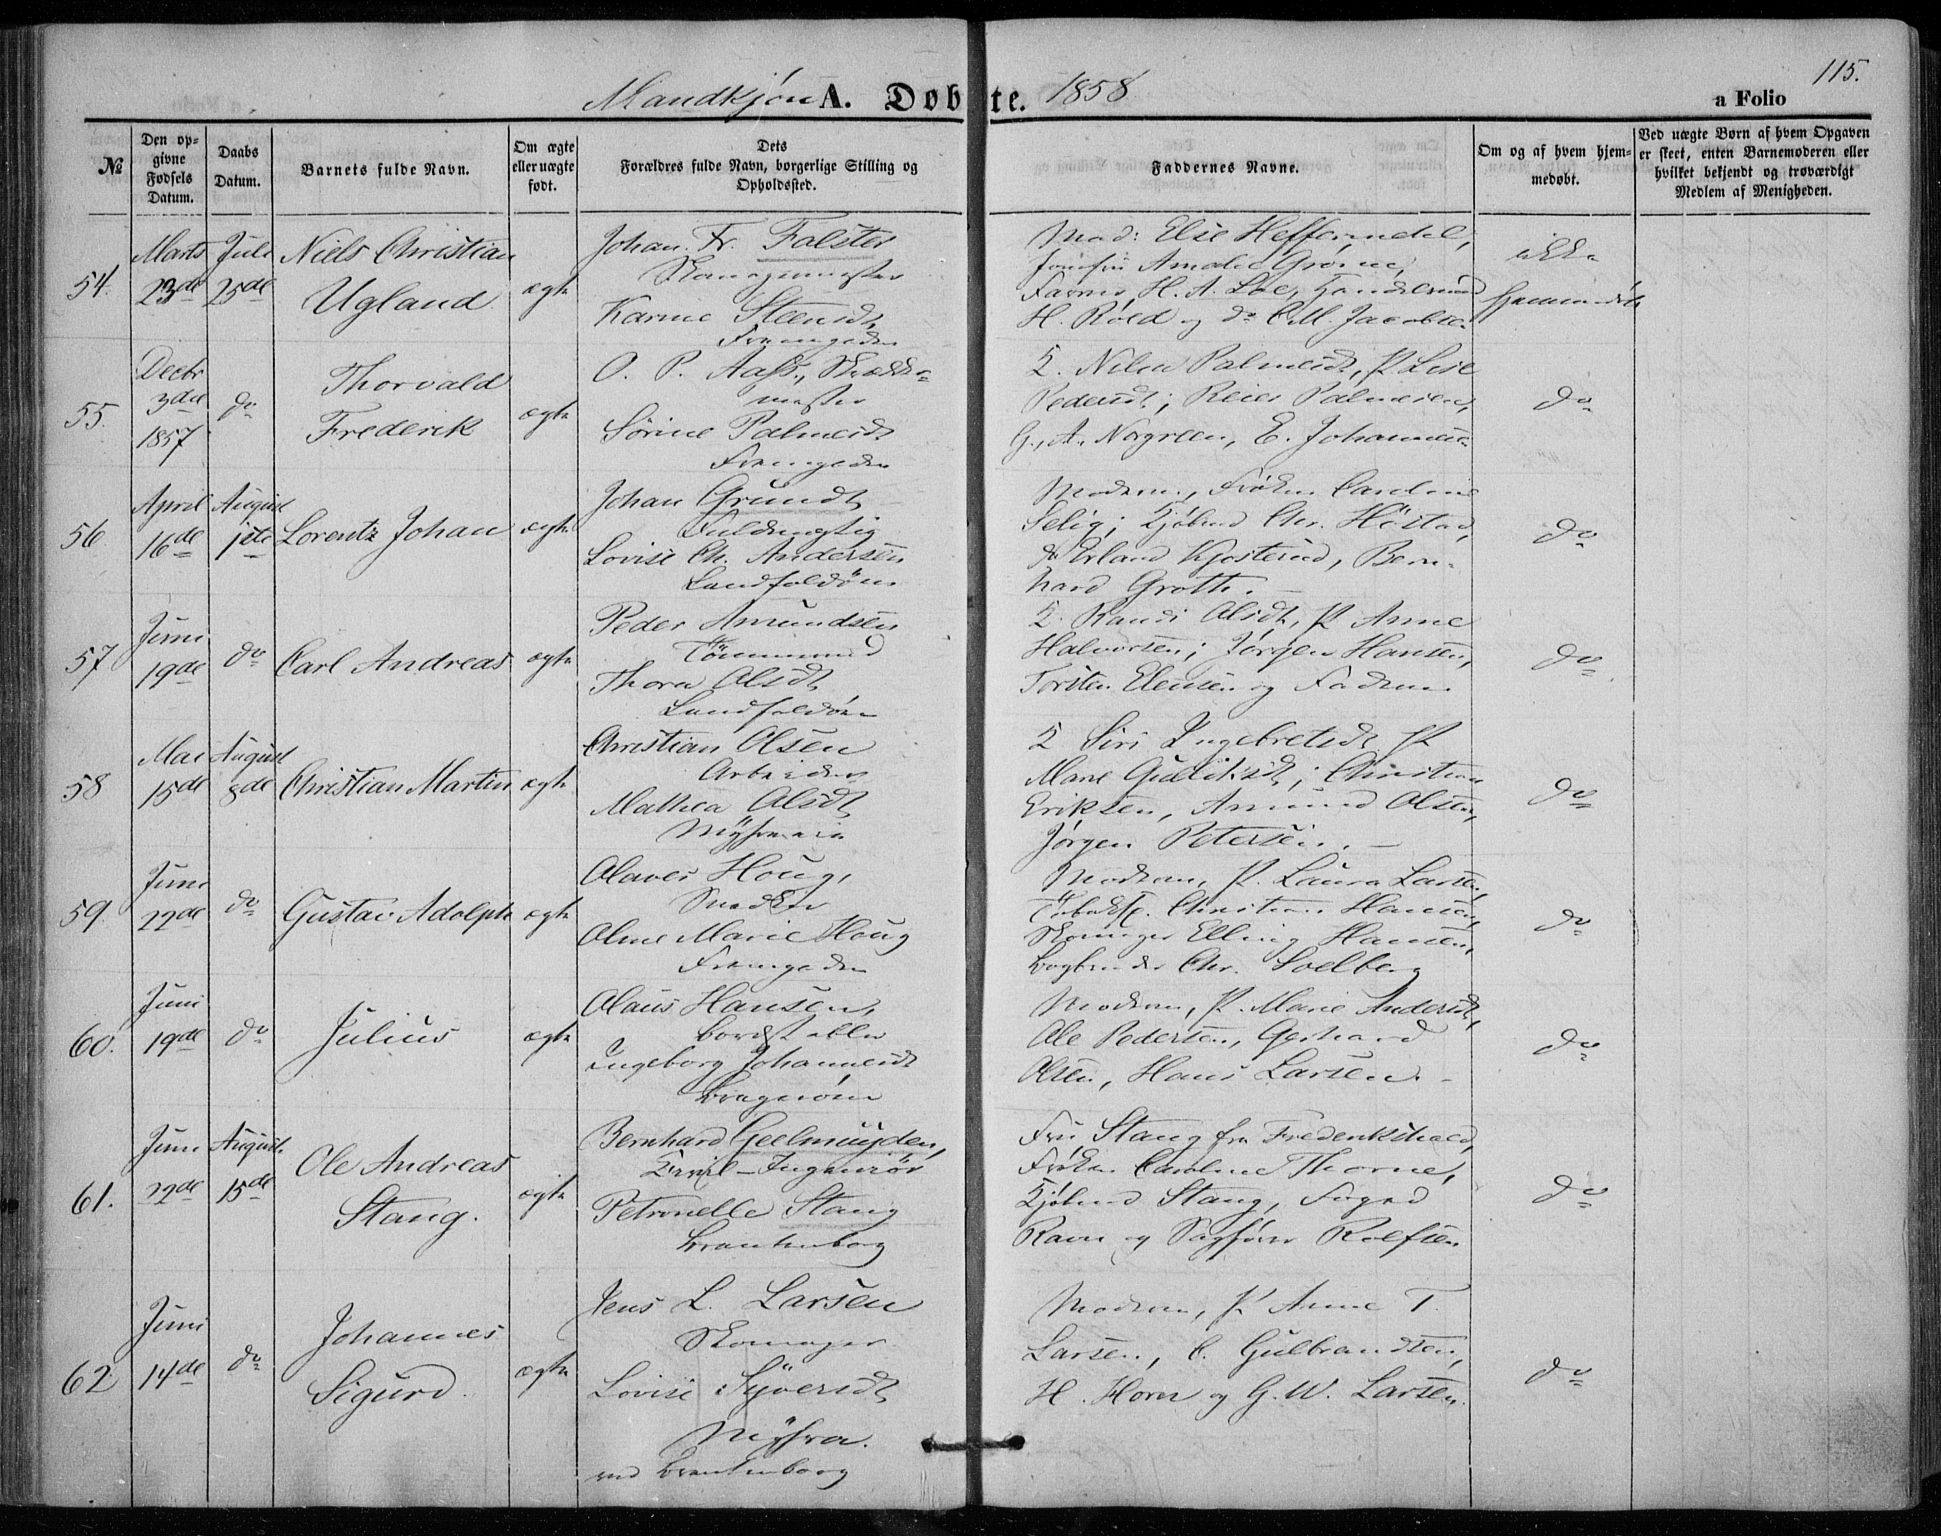 Mandkjøn A. Døbte. 1858
115.
a Folio
№
Den opgivne Fødsels Datum.
Daabs Datum.
Barnets fulde Navn.
Om ægte eller uægte født.
Dets Forældres fulde Navn, borgerlige Stilling og Opholdssted.
Faddernes Navne.
Om og af hvem hjemmedøbt.
Ved uægte Børn af hvem Opgaven er skeet, enten Barnemoderen eller hvilket bekjendt og troværdigt Medlem af Menigheden.
54.
Marts 23de
Juli 25de
Niels Christian
Ugland
ægte
Johan Fr. Falster
Karine Steensdt
Mad: Else
Amalie
H. A.
H. Rold og do C. M. Jacobsen
ikke
hjemmedøbt
55.
Decbr 3die 1857
do
Thorvald
Frederik
ægte
O. P. Aass,
Sørine Palmesdt
Palmesdt, P. Lise
Pedersdt; Reier Palmesen,
G. A. Norgreen, E. Johannesen
do
56
April 16de
August 1ste
Lorentz Johan
ægte
Johan Grundt
Fuldmægtig
Lovise Ch. Andersen
Landfaldøen
Modren, Frøken Caroline
Selig; Kjøbmd Chr. Høstad,
do Erland Kjosterud, Bern-
hard Grotte.
do
57
Juni 19de
do
Carl Andreas
ægte
Peder Amundsen
Tømmermd
Thora Olsdt
Landfaldøen
K. Randi Olsdt, P. Anne
Halvorsen; Jørgen Hansen,
Torsten Elensen og Fadren
do
58
Mai 15de
August 8de
Christian Martin
ægte
Christian Olsen
Arbeider
Mathea Olsdt
K. Siri Ingebretsdt P.
Marie Gulliksdt; Christian
Eriksen, Amund Olsen,
Jørgen Petersen.
do
59.
Juni 22de
do
Gustav Adolph
ægte
Olaves Houg,
Snedker
Oline Marie Houg
Modren, P. Laura Larsen,
Christian Hansen,
Skomager Elling Hansen,
Bogbinder Chr. Solberg
do
60.
Juni 19de
do
Julius
ægte
Olaus Hansen,
Bordstabler
Ingeborg Johannesdt
Bragerøen
Modren, P. Marie Andersdt,
Ole Pedersen, Gerhard
Olsen, Hans Larsen.
do
61.
Juni 22de
August 15de
Ole Andreas
Stang.
ægte
Bernhard Geelmuyden,
Civil-Ingeniør
Petronelle Stang
Brantenborg
Fru Stang fra Frederikshald,
Frøken Caroline Thorne,
Kjøbmd Stang, Foged
Ravn og Sagfører Rolfsen
do
62
Juni 14de
do
Johannes
Sigurd.
ægte
Jens L. Larsen
Skomager
Lovise Syversdt
ved Brantenborg
Modren, P. Anne T.
Larsen, C. Gulbrandsen,
H. Horn og G. W. Larsen.
do